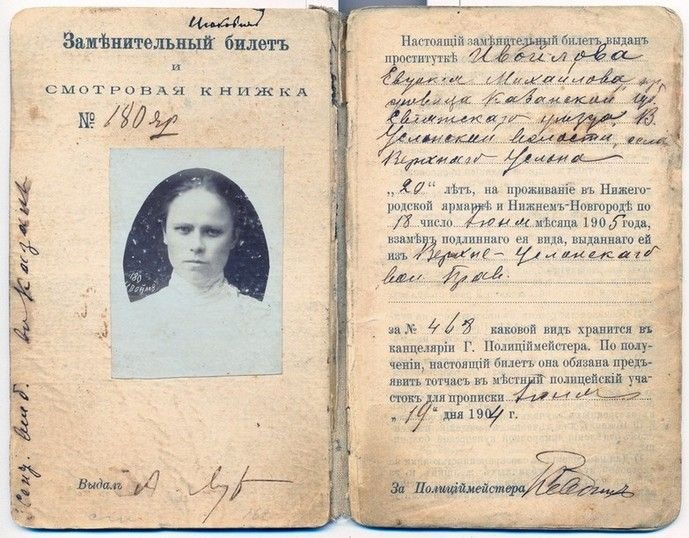 Замѣнительный билетъ
и
СМОТРОВАЯ КНИЖКА
№ 180 яр
180
Выдалъ
Настоящій замѣнительный билетъ выданъ
проституткѣ Ивойлова
Евдокія Михайлова, кр
Казанской губ.
Свіяжскаго уѣзда, В.
Услонской волости, села
Верхняго Услона
„20“ лѣтъ, на проживаніе въ Нижего-
родской ярмаркѣ и Нижнемъ-Новгородѣ по
18 число Іюня мѣсяца 1905 года,
взамѣнъ подлиннаго ея вида, выданнаго ей
изъ Верхне-Услонскаго
вол. Прав.
за № 468 каковой видъ хранится въ
канцеляріи Г. Полиціймейстера. По полу-
ченіи, настоящій билетъ она обязана предъ-
явить тотчасъ въ мѣстный полицейскій уча-
стокъ для прописки Іюня
„19“ дня 1904 г.
За Полиціймейстера